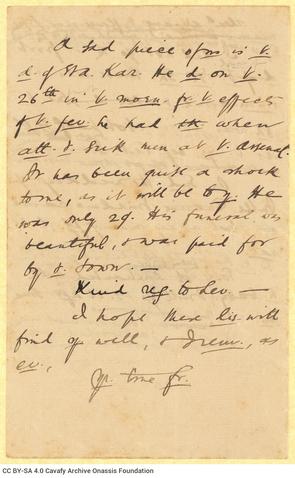 A sad piece of ns is v.
d. of Sta. Kar. He d on v.
26th in v. morn. fr v effects
of v. fev. he had when
att. t. sick men at v. Arsenal.
It has been quite a shock
to me, as it will be to y. He
was only 29. His funeral was
beautiful, & was paid for
by t. town. —
Kind reg. to Leo. —
I hope these lis will
find y well, & I rem., as
ev.,
Yr. true fr.
CC BY-SA 4.0 Cavafy Archive Onassis Foundation